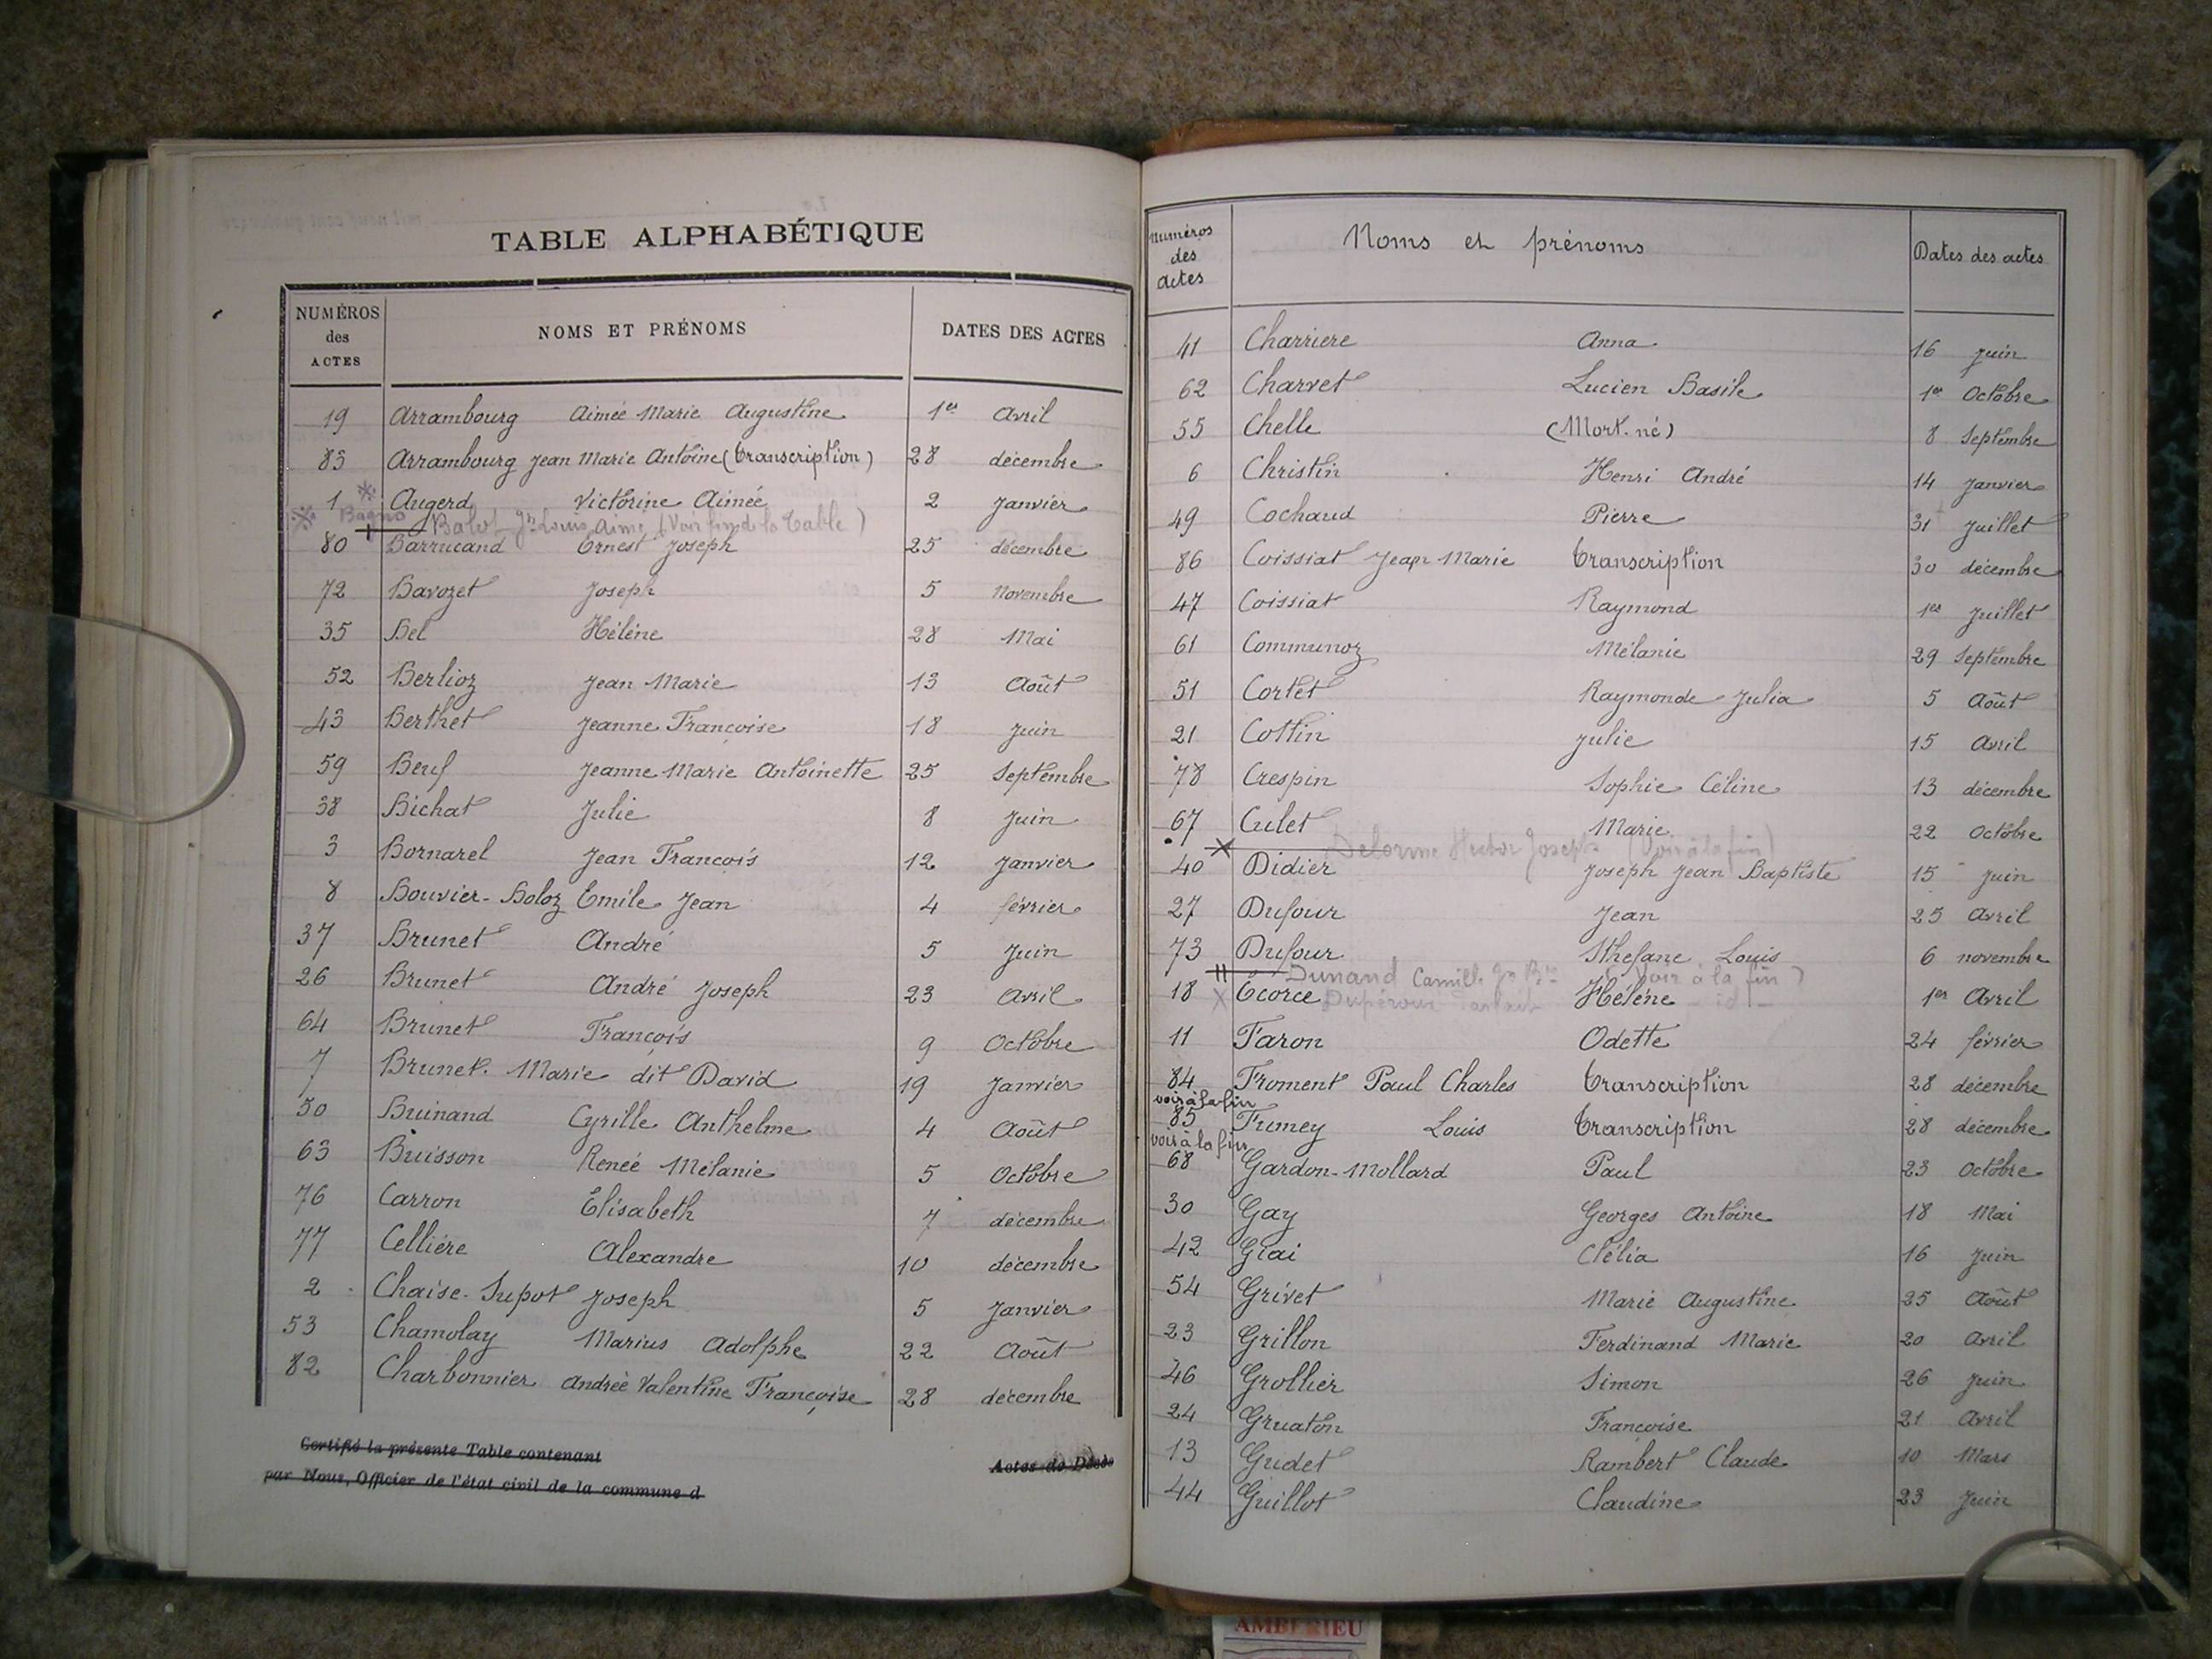 TABLE ALPHABÉTIQUE
NUMÉROS des ACTES NOMS ET PRÉNOMS DATES DES ACTES
19 Arrambourg Aimée Marie Augustine 1er Avril
83 Arrambourg Jean Marie Antoine (transcription) 28 décembre
1 Augerd Victorine Aimée 2 Janvier
Balot Jn Louis Aimé (Voir fin de la Table)
80 Barrucand Ernest Joseph 25 décembre
72 Bavozet Joseph 5 Novembre
35 Bel Hélène 28 Mai
52 Berlioz Jean Marie 13 Août
43 Berthet Jeanne Françoise 18 Juin
59 Beuf Jeanne Marie Antoinette 25 Septembre
38 Bichat Julie 8 Juin
3 Bornarel Jean François 12 Janvier
8 Bouvier-Boloz Emile Jean 4 février
37 Brunet André 5 Juin
26 Brunet André Joseph 23 Avril
64 Brunet François 9 Octobre
7 Brunet. Marie dit David 19 Janvier
50 Buinand Cyrille Anthelme 4 Août
63 Buisson Renée Mélanie 5 Octobre
76 Carron Élisabeth 7 décembre
77 Cellière Alexandre 10 décembre
2 Chaise-Supot Joseph 5 Janvier
53 Chamolay Marius Adolphe 22 Août
82 Charbonnier Andrée Valentine Françoise 28 décembre
Certifié la présente Table contenant Actes de Décès
par Nous, Officier de l'état civil de la commune d
Numéros des actes Noms et prénoms Dates des actes
41 Charriere Anna 16 Juin
62 Charvet Lucien Basile 1er Octobre
55 Chelle (Mort-né) 8 Septembre
6 Christin Henri André 14 Janvier
49 Cochaud Pierre 31 Juillet
86 Coissiat Jean Marie transcription 30 décembre
47 Coissiat Raymond 1er Juillet
61 Communoz Mélanie 29 Septembre
51 Cortet Raymonde Julia 5 Août
21 Cottin Julie 15 Avril
78 Crespin Sophie Céline 13 décembre
67 Culet Marie 22 Octobre
Delorme Hector Joseph (Voir à la fin)
40 Didier Joseph Jean Baptiste 15 Juin
27 Dufour Jean 25 Avril
73 Dufour Sthefane Louis 6 novembre
Dunand Camille Jn Bte (Voir à la fin)
18 Ecorce Hélène 1er Avril
id
11 Faron Odette 24 février
84 Froment Paul Charles transcription 28 décembre
voir à la fin
85 Fumey Louis transcription 28 décembre
voir à la fin
68 Gardon-Mollard Paul 23 Octobre
30 Gay Georges Antoine 18 Mai
42 Giai Clélia 16 Juin
54 Grivet Marie Augustine 25 Août
23 Grillon Ferdinand Marie 20 Avril
46 Grollier Simon 26 Juin
24 Gruaton Françoise 21 Avril
13 Gudet Rambert Claude 10 Mars
44 Guillot Claudine 23 Juin
AMBERIEU